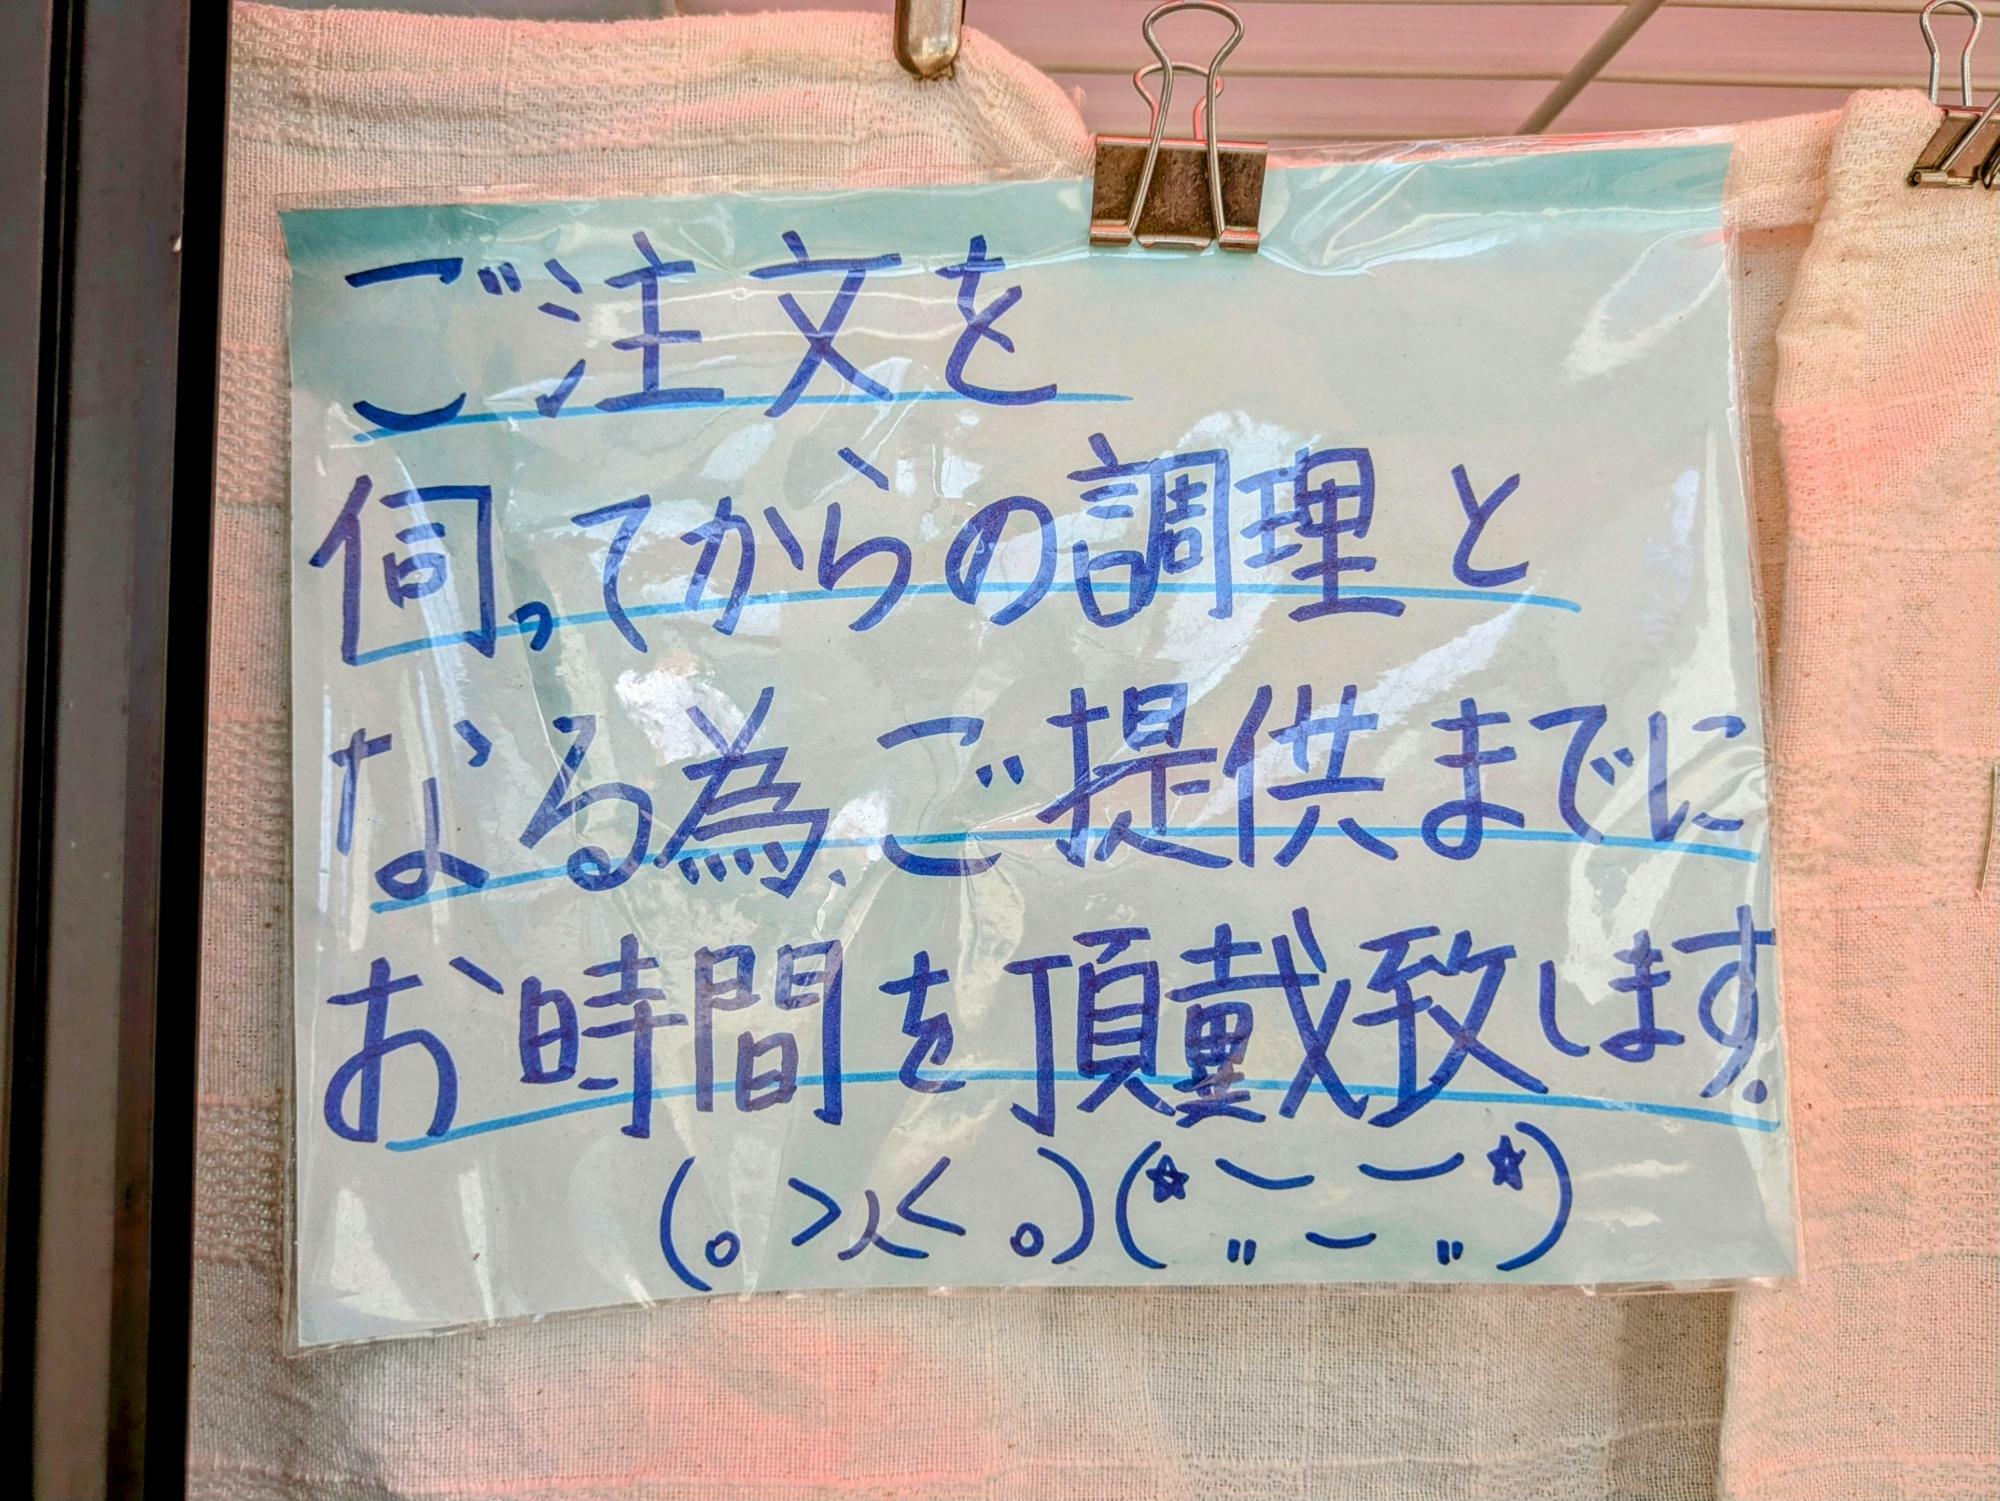 ご注文を
伺ってからの調理と
なる為、ご提供までに
お時間を頂戴致します.
(。>人<。)(*˘ ˘*)